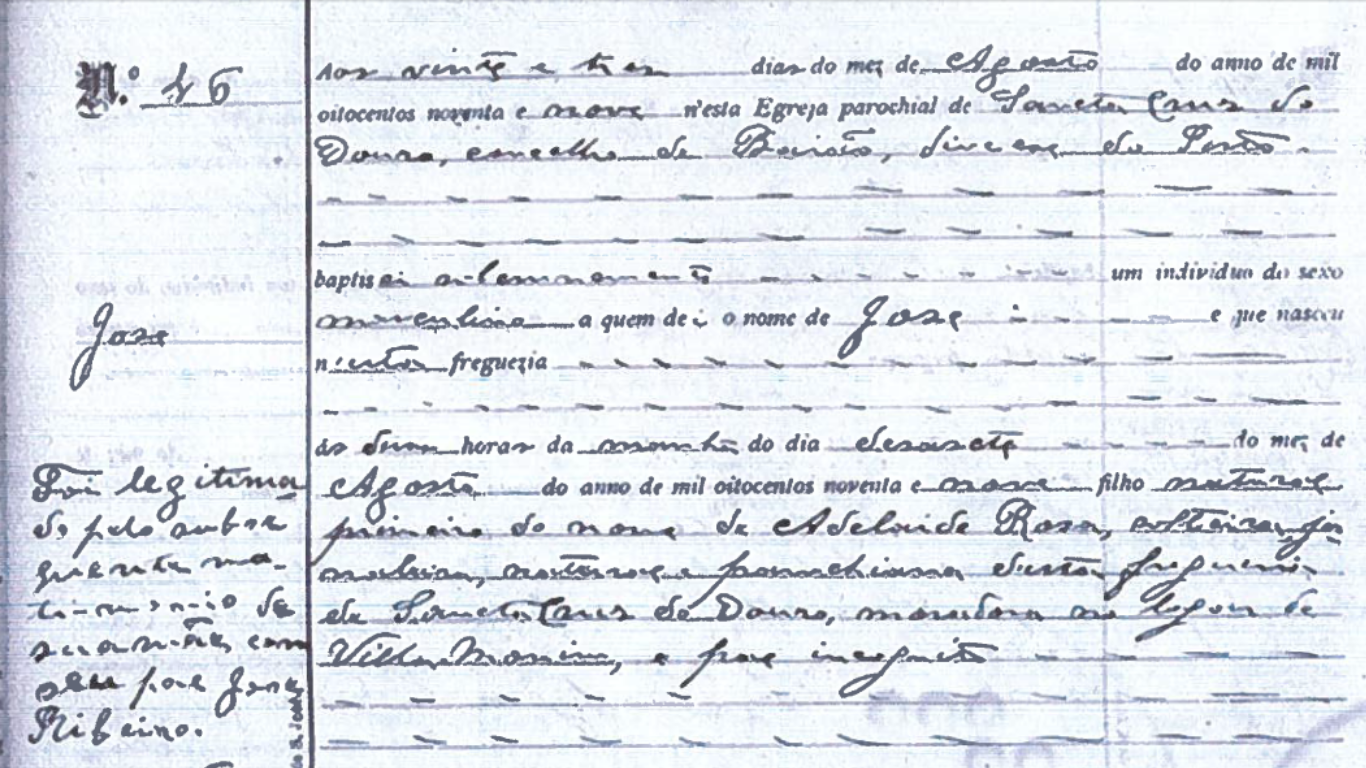 N.º 46
Aos vinte e tres dias do mez de Agosto do anno de mil
oitocentos noventa e nove n'esta Egreja parochial de Sancta Cruz do
Douro, concelho de Baião, diocese do Porto.
baptisei solemnemente um individuo do sexo
masculino a quem dei o nome de José e que nasceu
n'esta freguezia
José
ás duas horas da manhã do dia desasete do mez de
Agosto do anno de mil oitocentos noventa e nove filho natural
primeiro do nome de Adelaide Rosa, solteira, jor
naleira, natural e parochiana desta freguezia
de Sancta Cruz do Douro, moradora no logar de
e pae incognito
Foi legitima
do pelo subse
quente ma-
trimonio de
sua mãe com
seu pae José
Ribeiro.